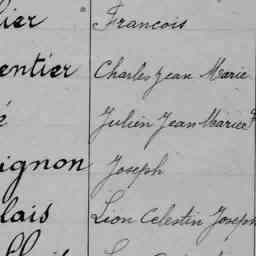 lier Francois
entier Charles Jean Marie
é Julien Jean Marie F
ignon Joseph
lais Léon Celestin Joseph